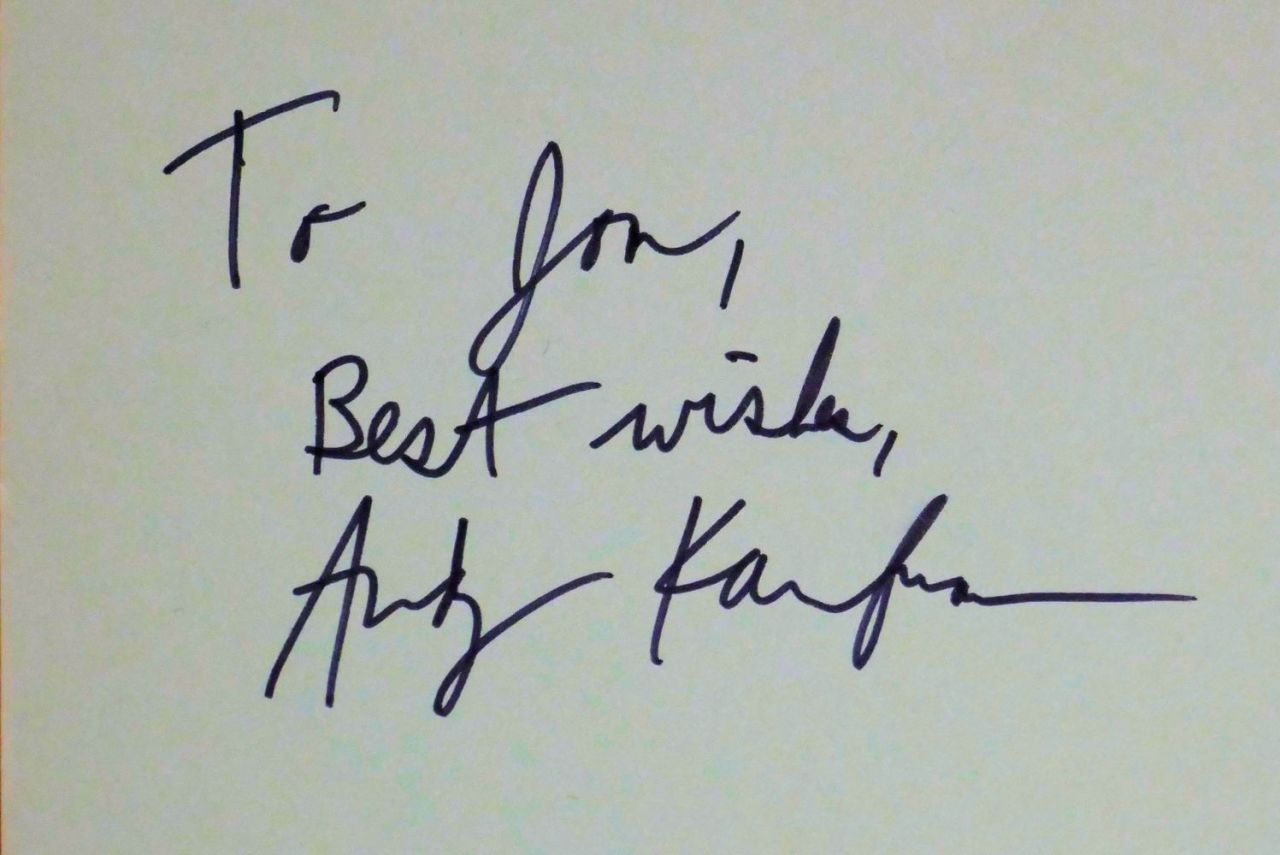 To Jon,
Best wishes,
Andy Kaufman